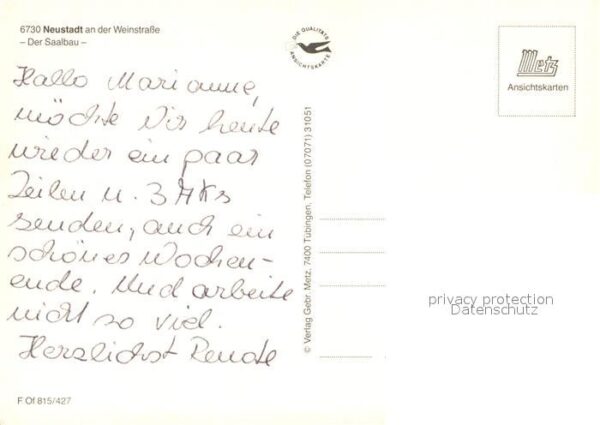 6730 Neustadt an der Weinstraße
– Der Saalbau –
Hallo Marianne,
möchte Dir heute
wieder ein paar
Zeilen u. 3 AKs
senden, auch ein
schönes Wochen-
ende. Und arbeite
nicht so viel.
Herzlichst Renate
F Of 815/427
DIE QUALITÄTS
ANSICHTSKARTE
© Verlag Gebr. Metz, 7400 Tübingen, Telefon (07071) 31051
Metz
Ansichtskarten
privacy protection
Datenschutz